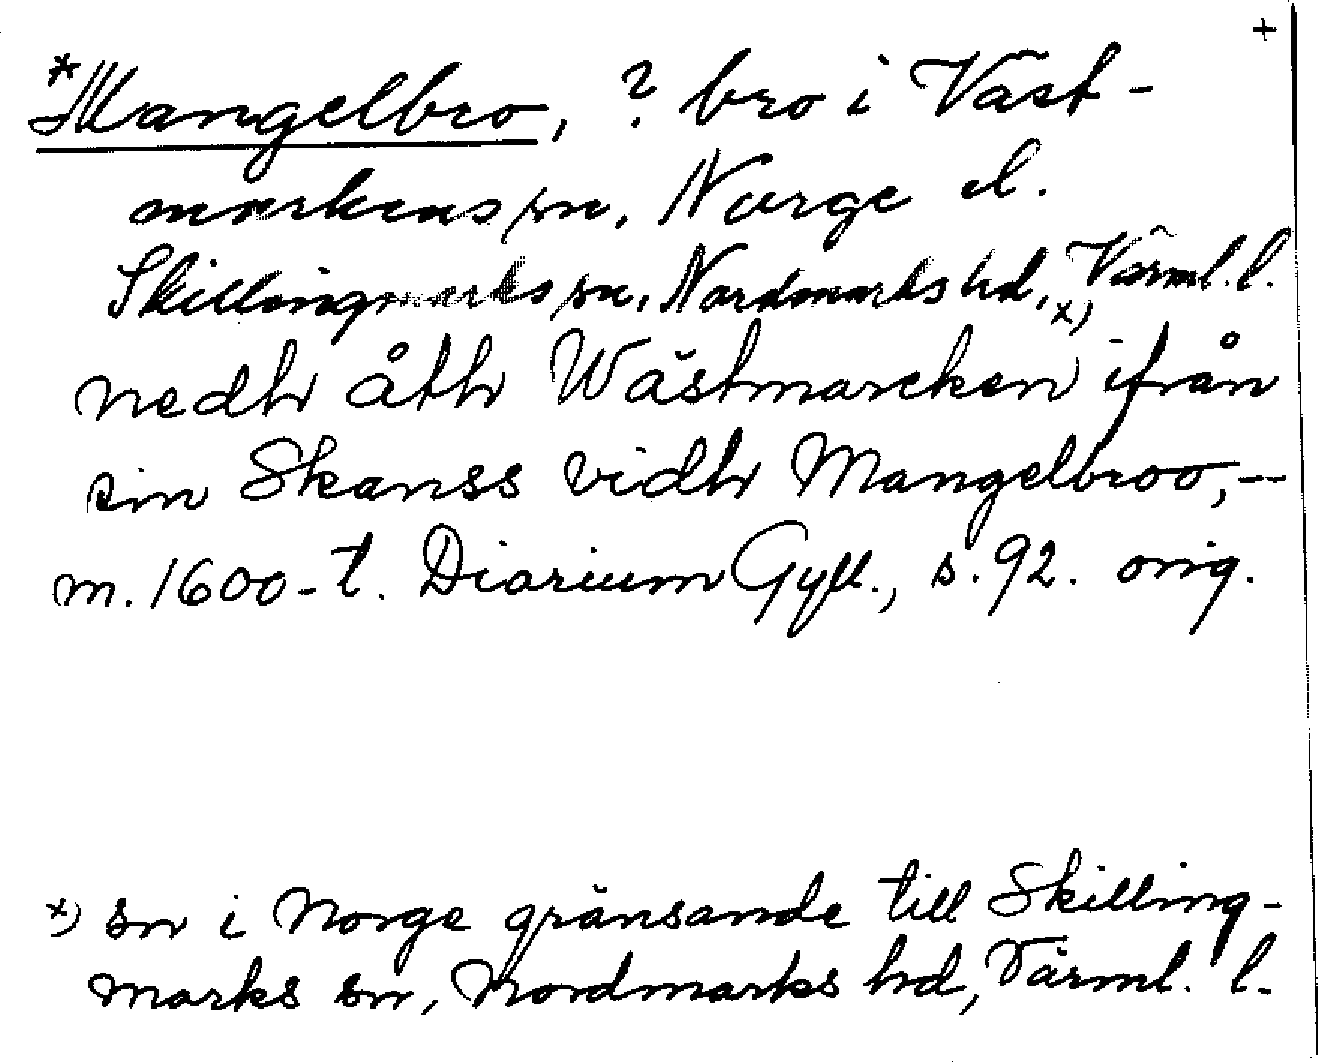 +
*Mangelbro, ? bro i Väst-
markens sn, Norge el.
Skillingmarks sn, Nordmarks hd, Värml. l.
nedh åth Wästmarcken x) ifrån
sin Skanss vidh Mangelbroo, --
m. 1600-t. Diarium Gyll., s. 92. orig.
x) sn i Norge gränsande till Skilling-
marks sn, Nordmarks hd, Värml. l.